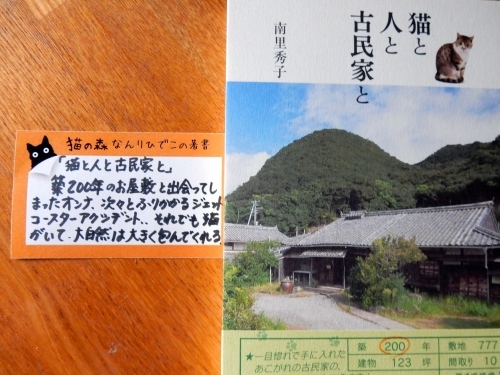 猫の森 なんりひでこの著書
「猫と人と古民家と」
築200年のお屋敷と出会ってし
まったオンナ、次々とふりかかるジェット
コースターアクシデント‥それでも猫
がいて、大自然は大きく包んでくれる
猫と
人と
古民家と
南里秀子
★一目惚れで手に入れた
あこがれの古民家の、
築 200 年 敷地 777
建物 123 坪 間取り 10